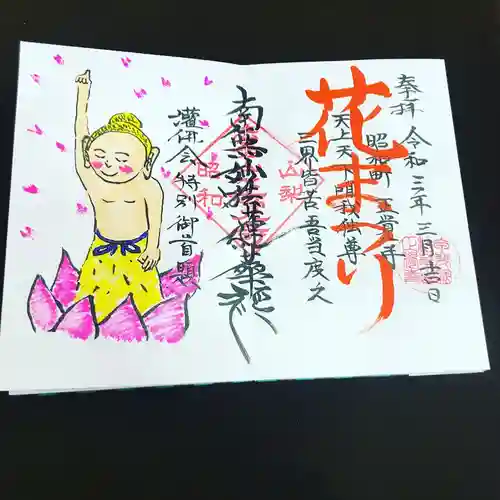 奉拝 令和三年三月吉日
昭和町 正覚寺
花まつり
天上天下唯我独尊
三界皆苦 吾当度之
山梨
南無妙法蓮華経
昭和
灌佛会 特別御首題